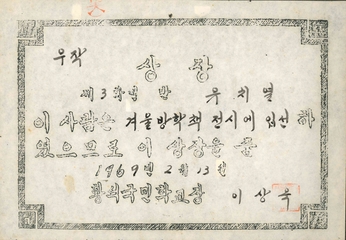 우작
상장
제3학년 반 우치열
이 사람은 겨울방학책 전시에 입선 하
였으므로 이 상장을 줌
1969년 2월 13일
국민학교장 이상욱